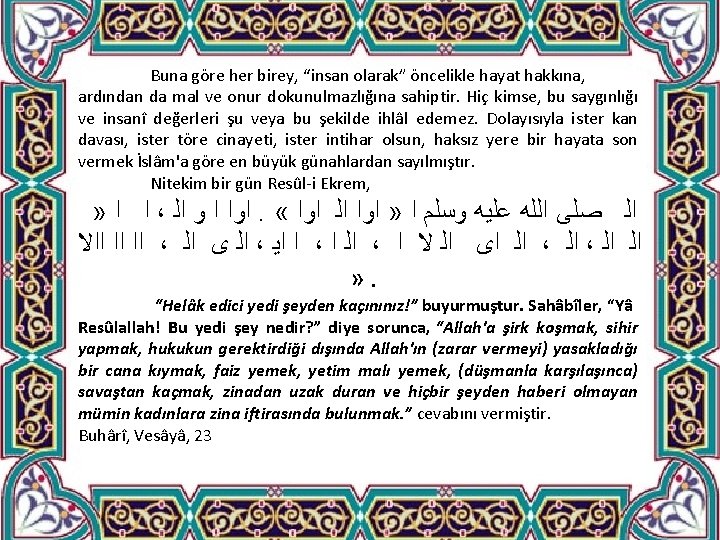 Buna göre her birey, “insan olarak” öncelikle hayat hakkına,
ardından da mal ve onur dokunulmazlığına sahiptir. Hiç kimse, bu saygınlığı
ve insanî değerleri şu veya bu şekilde ihlâl edemez. Dolayısıyla ister kan
davası, ister töre cinayeti, ister intihar olsun, haksız yere bir hayata son
vermek İslâm'a göre en büyük günahlardan sayılmıştır.
Nitekim bir gün Resûl-i Ekrem,
ﺍﻟ ﺻﻠﻰ ﺍﻟﻠﻪ ﻋﻠﻴﻪ ﻭﺳﻠﻢ ﺍ » ﺍﻭﺍ ﺍﻟ ﺍﻭﺍ « . ﺍﻭﺍ ﺍ ﻭ ﺍﻟ ، ﺍ ﺍ »
ﺍﻟ ﺍﻟ ، ﺍﻟ ، ﺍﻟ ﺍﻯ ﺍﻟ ﻻ ﺍ ، ﺍﻟ ﺍ ، ﺍ ﺍﻳ ، ﺍﻟ ﻯ ﺍﻟ ، ﺍﺍ ﺍﺍ ﺍﺍﻻ
. «
“Helâk edici yedi şeyden kaçınınız!” buyurmuştur. Sahâbîler, “Yâ
Resûlallah! Bu yedi şey nedir?” diye sorunca, “Allah'a şirk koşmak, sihir
yapmak, hukukun gerektirdiği dışında Allah'ın (zarar vermeyi) yasakladığı
bir cana kıymak, faiz yemek, yetim malı yemek, (düşmanla karşılaşınca)
savaştan kaçmak, zinadan uzak duran ve hiçbir şeyden haberi olmayan
mümin kadınlara zina iftirasında bulunmak.” cevabını vermiştir.
Buhârî, Vesâyâ, 23